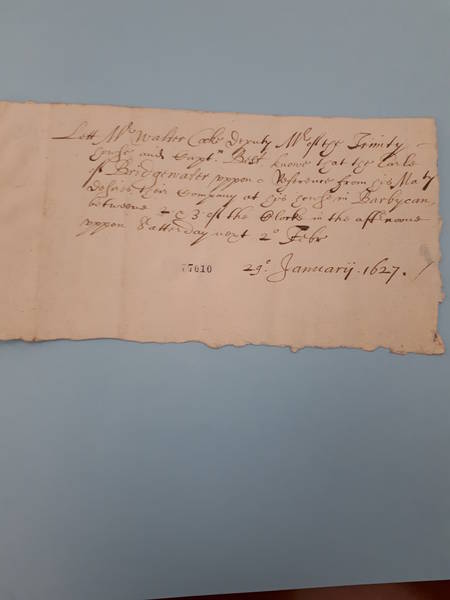 Lett Mr Walter Coke Deputy Mr of the Trinity
house and Capt: Best knowe that the Earle
of Bridgewater uppon a Reference from his Maty
desires their Company at his house in Barbycan,
betweene 2 & 3 of the Clock in the afternoone
uppon Satterday next 2º Febr
77010 29º. Januarij. 1627.